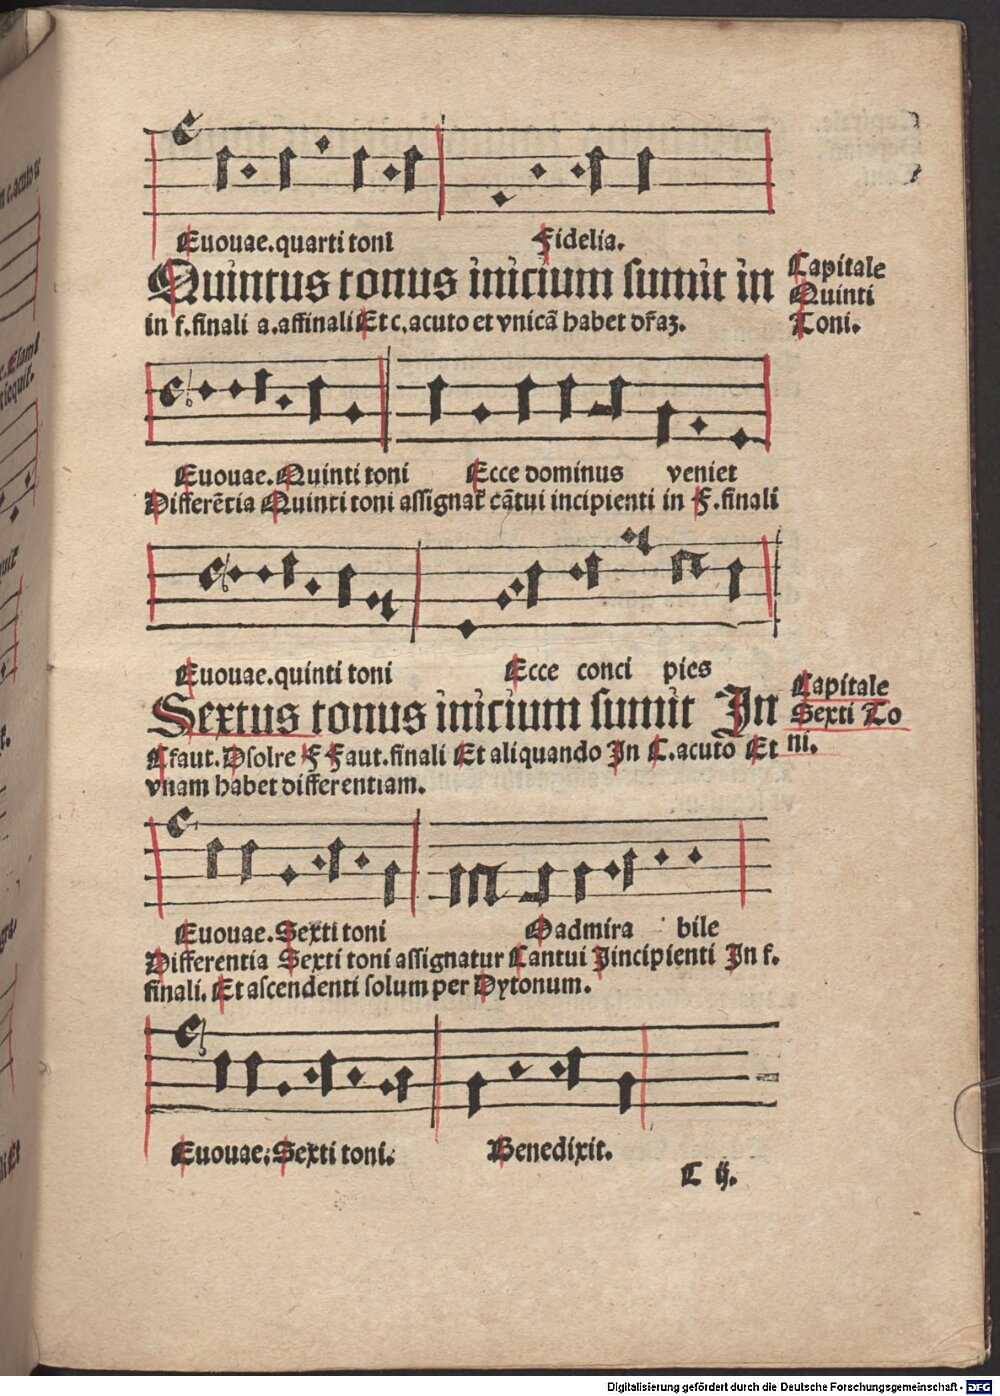 Euouae.quarti toni Fidelia.
Quintus tonus inicium sumit in
in f.finali a.affinali Et c,acuto et vnicã habet dr̃az.
Capitale
Quinti
Toni.
Euouae.Quinti toni Ecce dominus veniet
Differẽtia Quinti toni assignat̃ cãtui incipienti in F.finali
Euouae.quinti toni Ecce conci pies
Sextus tonus inicium sumit In
Cfaut.Dsolre F Faut.finali Et aliquando In C.acuto Et
vnam habet differentiam.
Capitale
Sexti To
ni.
Euouae.Sexti toni O admira bile
Differentia Sexti toni assignatur Cantui Iincipienti In f.
finali. Et ascendenti solum per Dytonum.
Euouae:Sexti toni. Benedixit.
C ij.
Digitalisierung gefördert durch die Deutsche Forschungsgemeinschaft - DFG